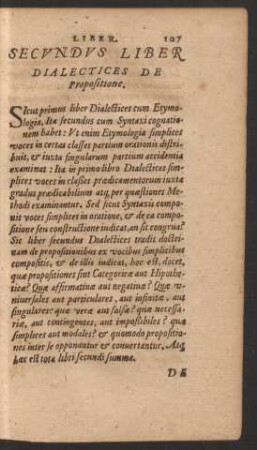 LIBER. 107
SECVNDVS LIBER
DIALECTICES DE
Propositione.
SIcut primus liber Dialectices cum Etymo-
logia, Ita secundus cum Syntaxi cognatio-
nem habet: Vt enim Etymologia simplices
voces in certas classes partium orationis distri-
buit, & iuxta singularum partium accidentia
examinat: Ita in primo libro Dialectices sim-
plices voces in classes prædicamentorum iuxta
gradus prædicabilium atq; per quæstiones Me-
thodi examinantur. Sed sicut Syntaxis compo-
nit voces simplices in oratione, & de ea compo-
sitione seu constructione iudicat, an sit congrua:
Sic liber secundus Dialectices tradit doctri-
nam de propositionibus ex vocibus simplicibus
compositis, & de illis iudicat, hoc est, docet,
quæ propositiones sint Categoricæ aut Hypothe-
ticæ? Quæ affirmatiuæ aut negatiuæ? Quæ v-
niuersales aut particulares, aut infinitæ, aut
singulares? quæ veræ aut falsæ? quæ necessa-
riæ, aut contingentes, aut impossibiles? quæ
simplices aut modales? & quomodo propositio-
nes inter se opponantur & conuertantur. Atq;
hæc est tota libri secundi summa.
DE